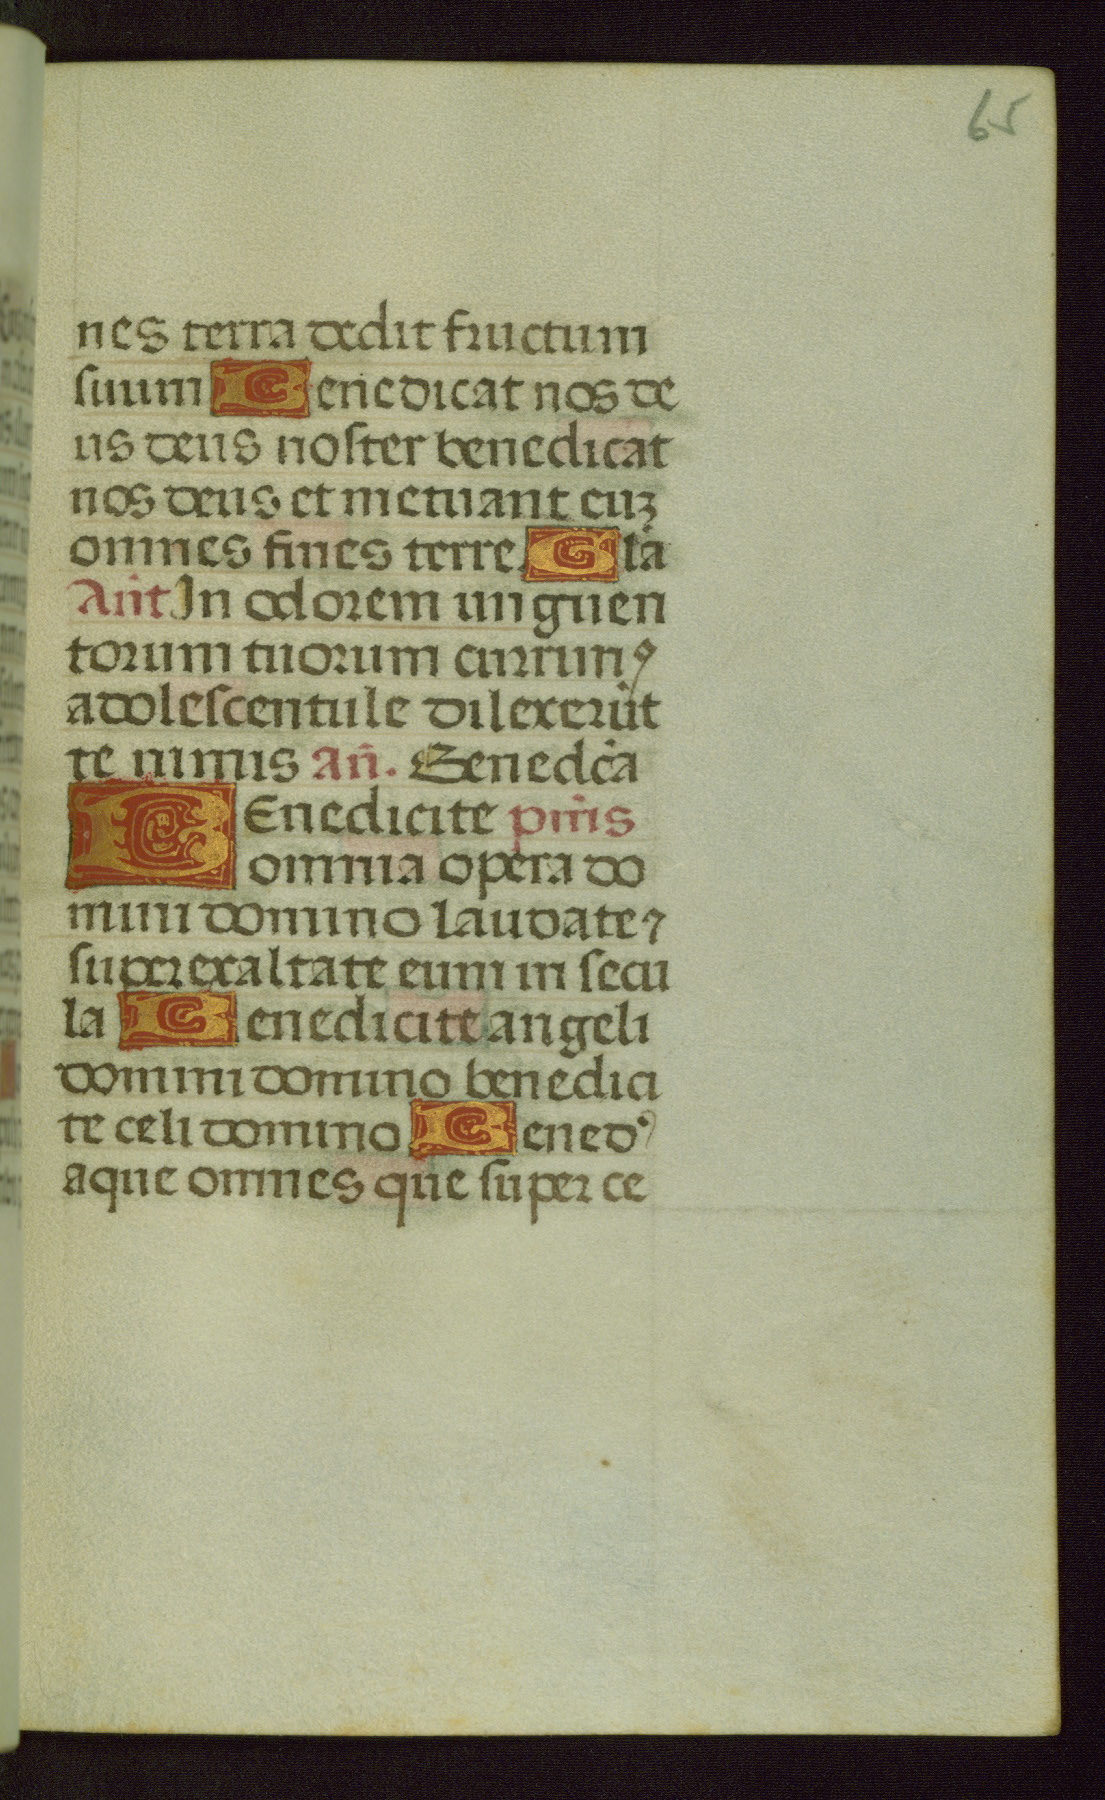 65
nes terra dedit fructum
suum Benedicat nos de
us deus noster benedicat
nos deus et metuant euꝫ
omnes fines terre. Gl̃a
Añt In odorem unguen
torum tuorum currimꝰ
adolescentule dilexerũt
te nimis añ. Benedc̃a
BEnedicite pm̃s
omnia opera do
mini domino laudate ⁊
superexaltate eum in secu
la Benedicite angeli
domini domino benedici
te celi domino Benedᵒ
aque omnes que super ce